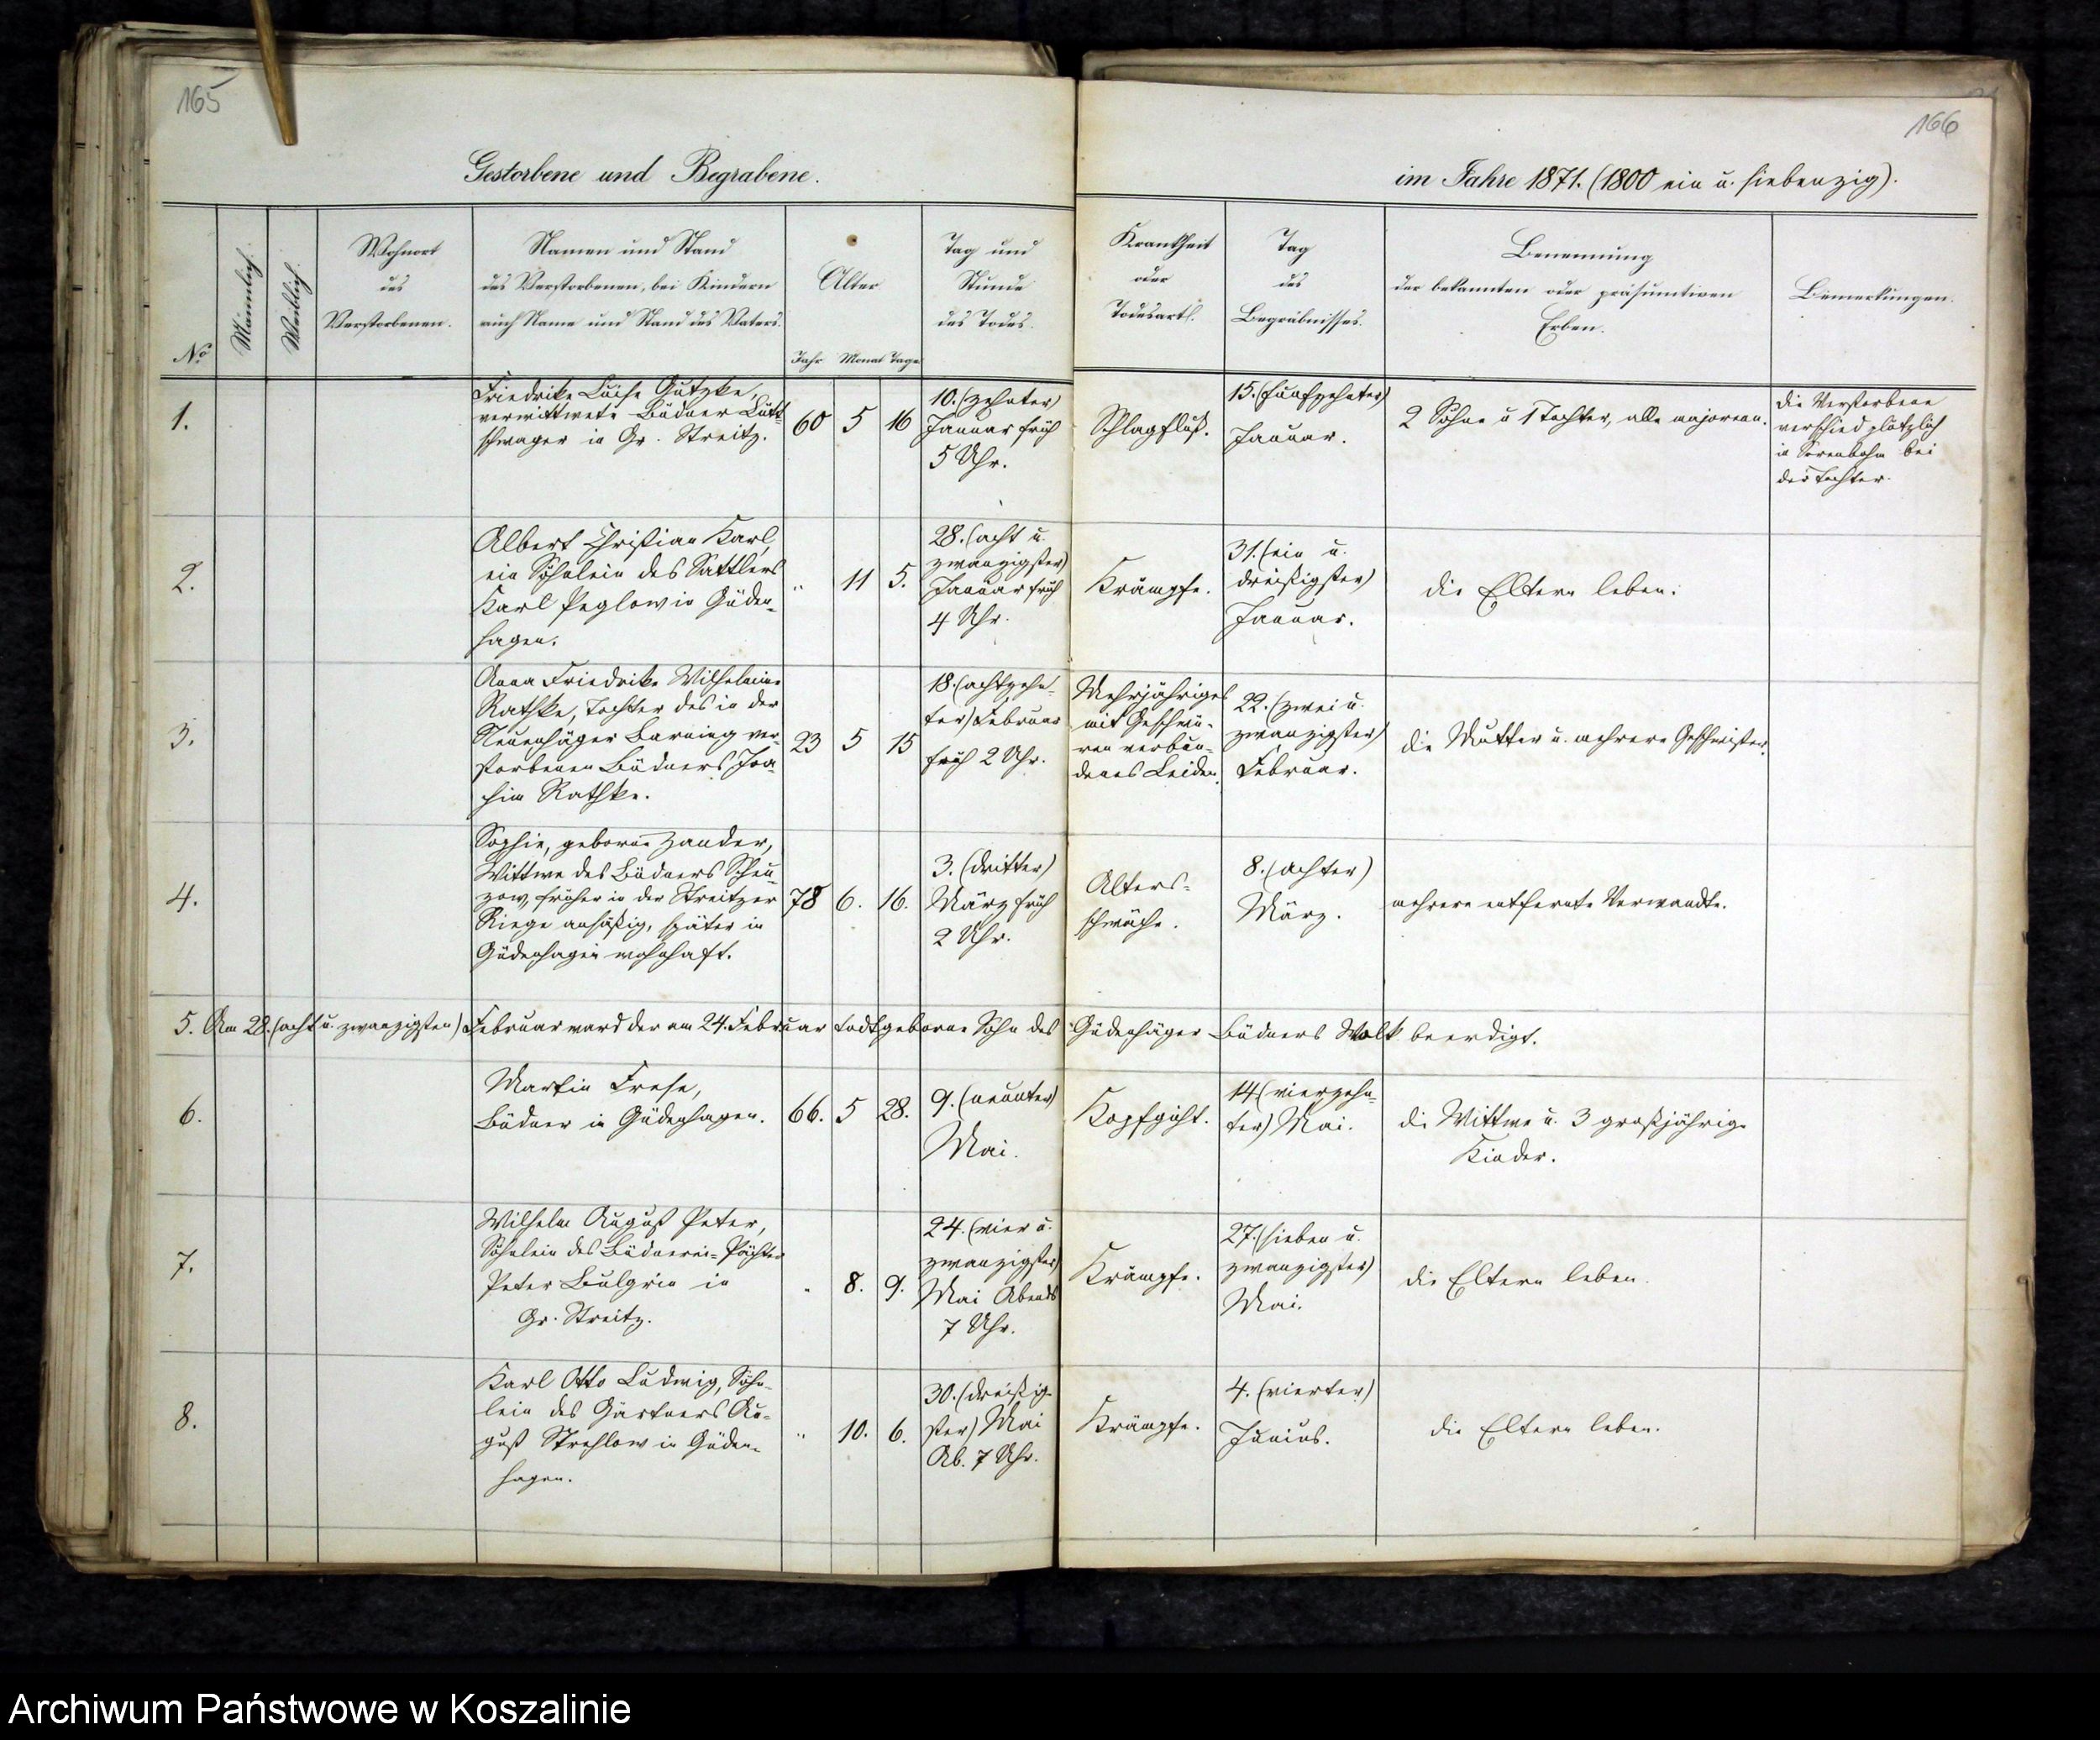 165
166
Gestorbene und Begrabene.
im Jahre 1871. (1800 ein u. siebenzig).
No
Männlich.
Weiblich.
Wohnort
des
Verstorbenen.
Namen und Stand
des Verstorbenen, bei Kindern
auch Name und Stand des Vaters.
Alter
Jahr Monat Tage
Tag und
Stunde
des Todes.
Krankheit
oder
Todesart.
Tag
des
Begräbnisses.
Benennung
der bekannten oder präsumtiven
Erben.
Bemerkungen.
1.
Friedrike Luise Gutzke,
verwittwete Büdner Lütt-
schwager in Gr. Streitz.
60 5 16
10. (zehnter)
Januar früh
5 Uhr.
Schlagfluß.
15. (fünfzehnter)
Januar.
2 Söhne u 1 Tochter, alle majorenn.
die Verstorbene
verschied plötzlich
in Sorenbohm bei
der Tochter.
2.
Albert Christian Karl,
ein Söhnlein des Sattlers
Karl Peglow in Güden-
hagen.
" 11 5.
28. (acht u.
zwanzigster)
Januar früh
4 Uhr.
Krämpfe.
31. (ein u.
dreißigster)
Januar.
die Eltern leben.
3.
Anna Friedrike Wilhelmine
Rathke, Tochter des in der
Neuenhäger Barning ver-
storbenen Büdners Joa-
chim Rathke.
23 5 15
18. (achtzehn-
ter) Februar
früh 2 Uhr.
Mehrjähriges
mit Geschwü-
ren verbun-
denes Leiden.
22. (zwei u.
zwanzigster)
Februar.
die Mutter u. mehrere Geschwister.
4.
Sophie, geborne Zander,
Wittwe des Büdners
früher in der Streitzer
Riege ansäßig, später in
Güdenhagen wohnhaft.
78 6. 16.
3. (dritter)
März früh
2 Uhr.
Alters-
schwäche.
8. (achter)
März.
mehrere entfernte Verwandte.
5. Am 28. (acht u. zwanzigsten) Februar ward der am 24. Februar todtgeborne Sohn des Güdenhäger Büdners Volk beerdigt.
6.
Martin Frese,
Büdner in Güdenhagen.
66. 5 28.
9. (neunter)
Mai.
Kopfgicht.
14. (vierzehn-
ter) Mai.
die Wittwe u. 3 großjährige
Kinder.
7.
Wilhelm August Peter,
Söhnlein des Büdnerei-Pächters
Peter Bulgrin in
Gr. Streitz.
" 8. 9.
24. (vier u.
zwanzigster)
Mai Abends
7 Uhr.
Krämpfe.
27. (sieben u.
zwanzigster)
Mai.
die Eltern leben.
8.
Karl Otto Ludwig, Söhn-
lein des Gärtners Au-
gust Strehlow in Güden-
hagen.
" 10. 6.
30. (dreißig-
ster) Mai
Ab. 7 Uhr.
Krämpfe.
4. (vierter)
Junius.
die Eltern leben.
Archiwum Państwowe w Koszalinie